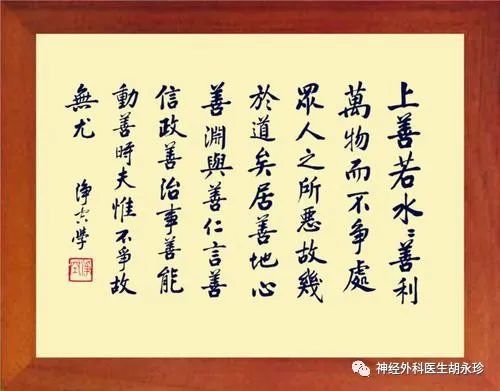 上善若水〻善利
萬物而不争處
眾人之所惡故幾
於道矣居善地心
善淵與善仁言善
信政善治事善能
動善時夫惟不爭故
無尤
淨空學
神经外科医生胡永珍